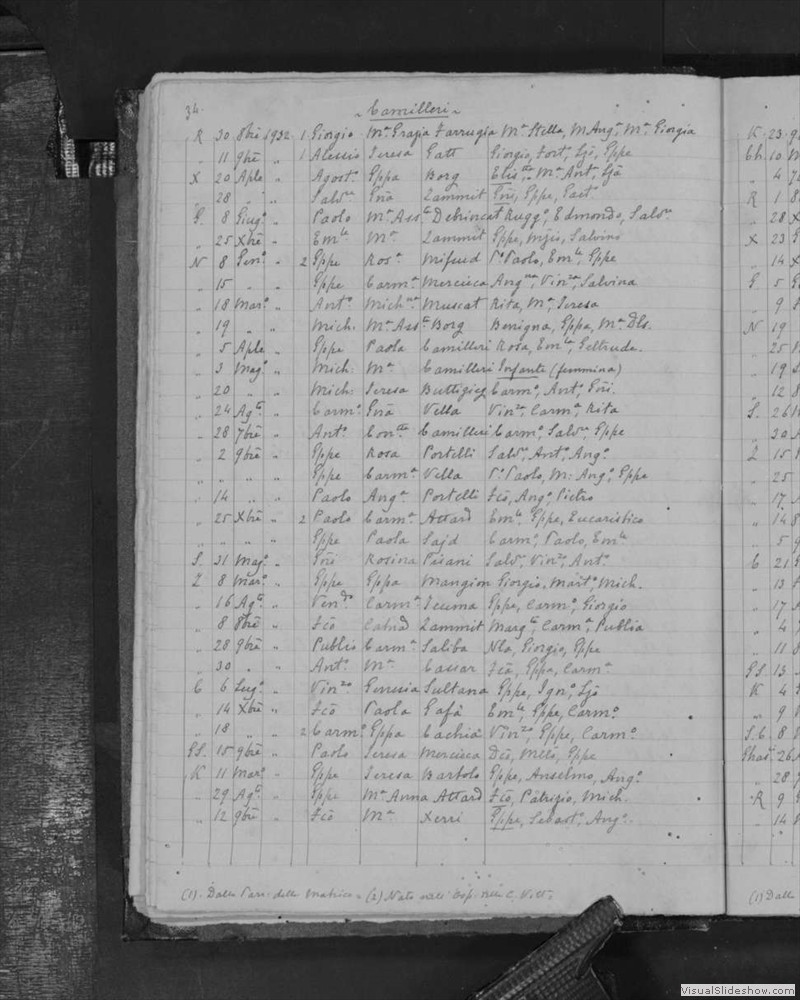 34.
Camilleri
R 30 8bre 1932 1 Giorgio Ma Grazia Farrugia Ma Stella, M Anga, Ma Giorgia
„ 11 9bre „ 1 Alessio Teresa Gatt Giorgio, Fort, Ljs, Gppe
X 20 Aple „ Agosto Gppa Borg Elisa Ma Ant,
„ 28 „ „ Salvre Zammit Gppe,
G. 8 Giugo „ Paolo Ma Assta Debrincat Ruggo, Edmondo, Salvre
„ 25 Xbre „ Emle Ma Zammit Gppe, Salvino
N 8 Geno „ 2 Gppe Rosa Mifsud Po Paolo, Emle, Gppe
„ 15 „ „ Gppe Carma Mercieca Angna, Vinza, Salvina
„ 18 Maro „ Anto Michna Muscat Rita, Ma, Teresa
„ 19 „ „ Mich: Ma Assta Borg Benigna, Gppa, Ma Dls.
„ 5 Aple „ Gppe Paola Camilleri Rosa, Emla, Geltruda.
„ 3 Mago „ Mich: Ma Camilleri Infante (femmina)
„ 20 „ „ Mich: Teresa Buttigieg Carmo, Anto,
„ 24 Agto „ Carmo Vella Vinzo, Carma, Rita
„ 28 7bre „ Anto Contta Camilleri Carmo, Salvre, Gppe
„ 2 9bre „ Gppe Rosa Portelli Salvre, Anto, Ango
„ „ „ „ Gppe Carma Vella Po Paolo, M: Ango, Gppe
„ 14 „ „ Paolo Anga Portelli Fco, Ango, Pietro
„ 25 Xbre „ 2 Paolo Carma Attard Emle, Gppe, Eucaristico
„ „ „ „ Gppe Paola Sajd Carmo, Paolo, Emle
S. 31 Mago „ Rosina Pisani Salvre, Vinzo, Anto
Z 8 Maro „ Gppe Gppa Mangion Giorgio, Marto, Mich.
„ 16 Agto „ Carma Tcuma Gppe, Carmo, Giorgio
„ 8 8bre „ Fco Zammit Margta, Carma, Publia
„ 28 9bre „ Publio Carma Saliba Nla, Giorgio, Gppe
„ 30 „ „ Anto Ma Cassar Fca, Gppa, Carma
C 6 Lugo „ Vinzo Genesia Sultana Gppe, Igno,
„ 14 Xbre „ Fco Paola Gafà Emle, Gppe, Carmo
„ 18 „ „ 2 Carmo Gppa Cachia Vinzo, Gppe, Carmo
PS. 15 9bre „ Paolo Teresa Mercieca Gppe
K 11 Maro „ Gppe Teresa Bartolo Gppe, Anselmo, Ango
„ 29 Agto „ Gppe Ma Anna Attard Fco, Patrizio, Mich.
„ 12 9bre „ Fco Ma Xerri Gppe, Sebasto, Ango
(1). Dalla Parr: della Matrice - (2) Nato nell' Osp: della C. Vitt:
K 23
Ch. 10
„ 4
R 1
„ 28
X 23
„ 14
G 5
„ 9
N 19
„ 25
„ 19
„ 12
S. 26
„ 30
Z 15
„ 25
„ 17
„ 14
„ 5
C 21
„ 13
„ 17
„ 4
„ 11
PS. 13
K 4
„ 9
S.C. 8
Ghas. 26
„ 28
R 9
„ 14
(1) Dalla
VisualSlideshow.com